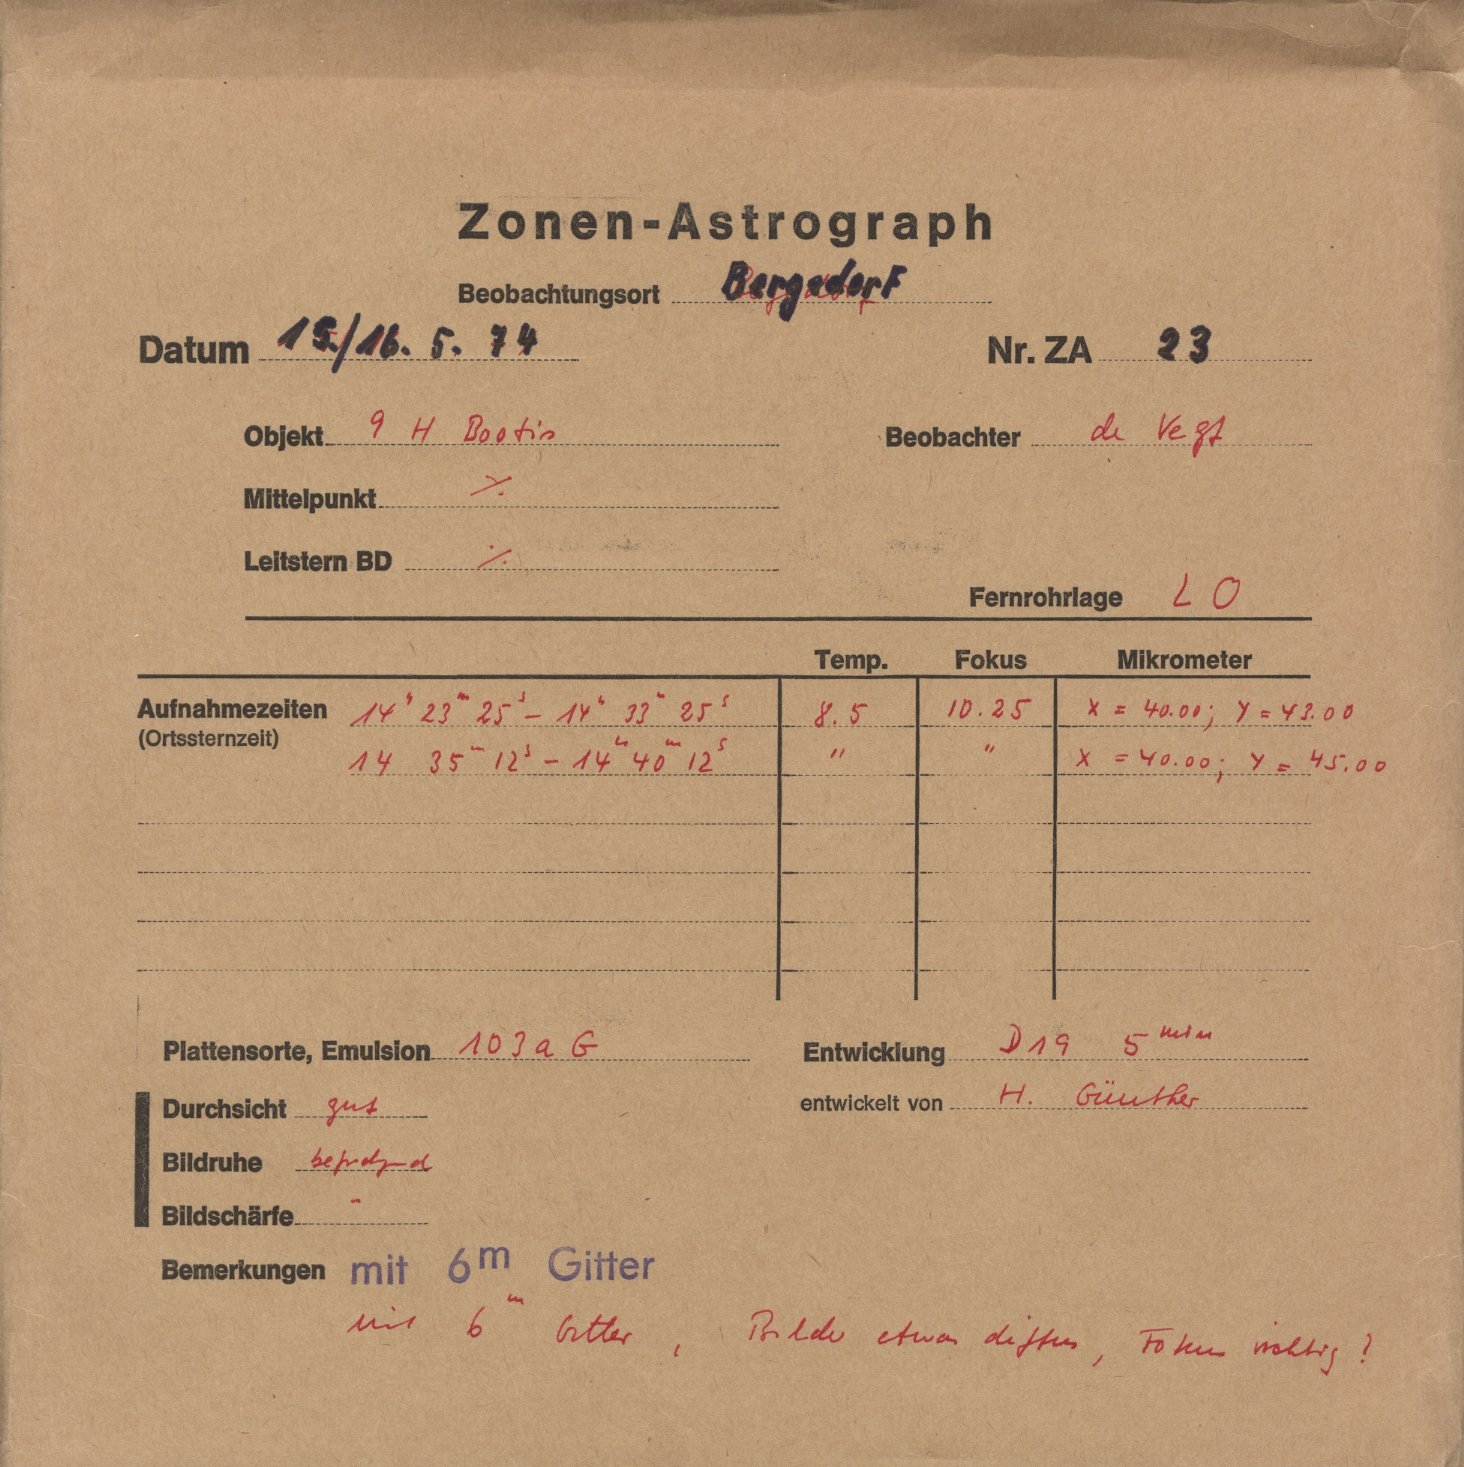 Zonen-Astrograph
Beobachtungsort Bergedorf
Datum 15./16. 5. 74 Nr. ZA 23
Objekt 9 H Bootis Beobachter de Vegt
Mittelpunkt ⁒
Leitstern BD ⁒
Fernrohrlage L O
Temp. Fokus Mikrometer
Aufnahmezeiten 14ʰ 23ᵐ 25ˢ – 14ʰ 33ᵐ 25ˢ 8.5 10.25 X = 40.00; Y = 43.00
(Ortssternzeit)
14 35ᵐ 12ˢ – 14ʰ 40ᵐ 12ˢ " " X = 40.00; Y = 45.00
Plattensorte, Emulsion 103a G Entwicklung D19 5 min
Durchsicht gut entwickelt von H. Günther
Bildruhe
Bildschärfe -
Bemerkungen mit 6ᵐ Gitter
mit 6ᵐ Gitter, Bilder etwas diffus, Fokus richtig?